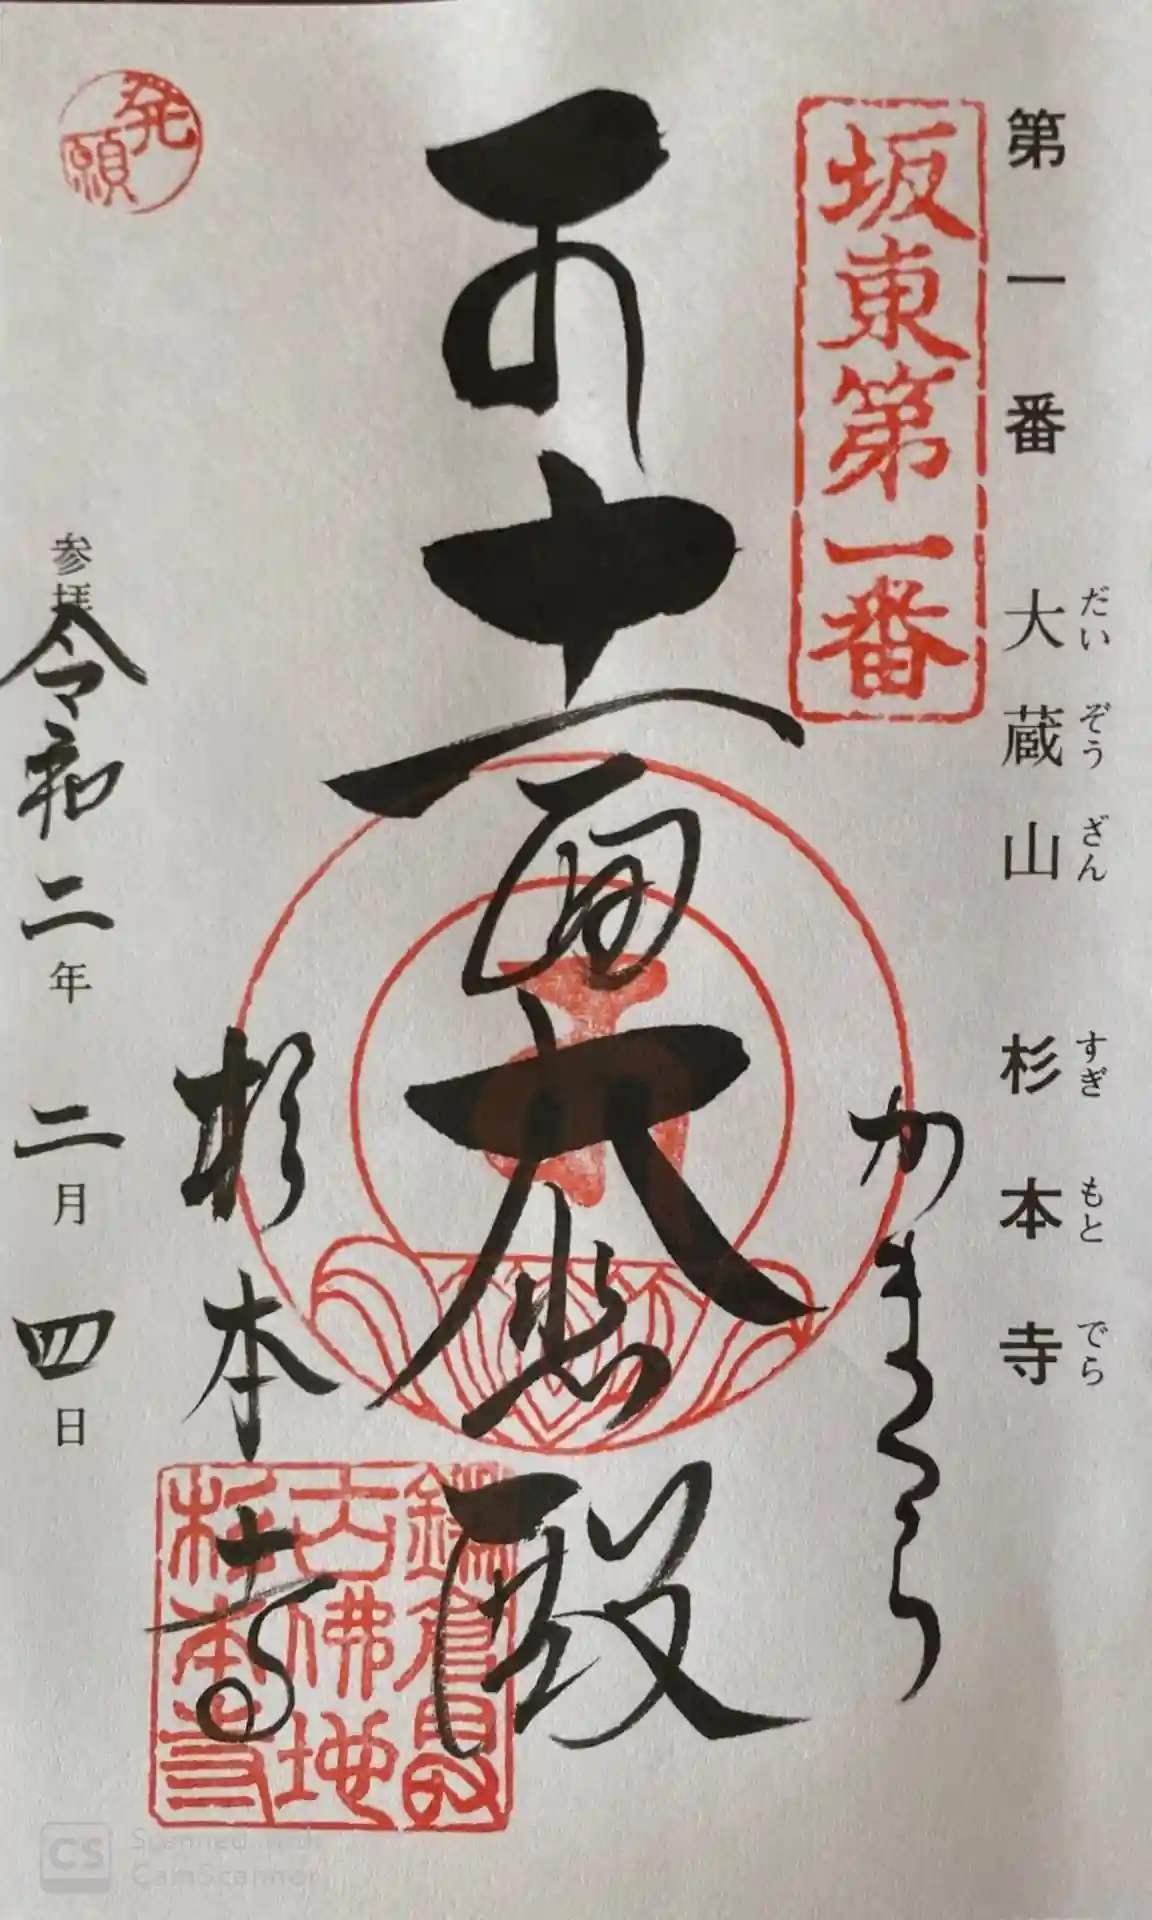 第一番 大蔵山 杉本寺
だいぞうざん すぎもとでら
坂東第一番
かまくら
十一面大悲殿
杉本寺
鎌倉最
古佛地
杉本寺
発願
参拝 令和二年二月四日
CS Scanned with
CamScanner